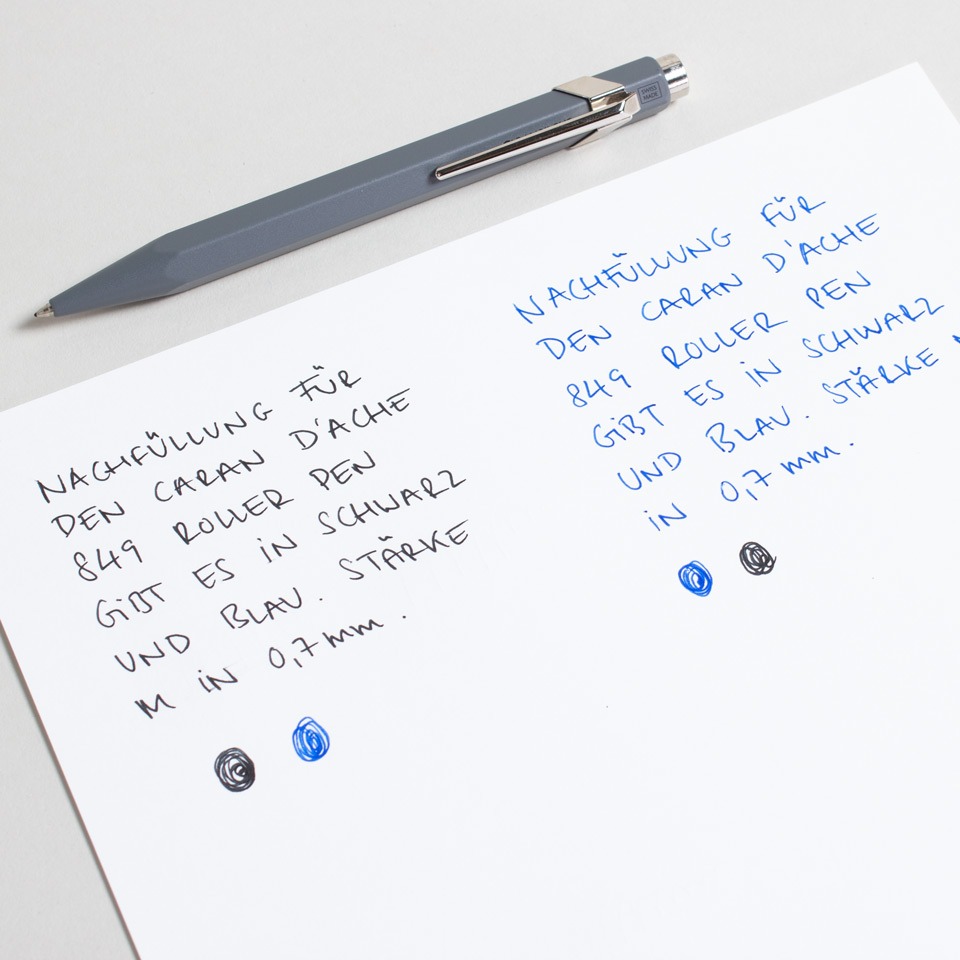 SWISS
MADE
NACHFÜLLUNG FÜR
DEN CARAN D'ACHE
849 ROLLER PEN
GiBT ES iN SCHWARZ
UND BLAU. STÄRKE
M iN 0,7mm.
NACHFÜLLUNG FÜR
DEN CARAN D'ACHE
849 ROLLER PEN
GiBT ES iN SCHWARZ
UND BLAU. STÄRKE
iN 0,7mm.